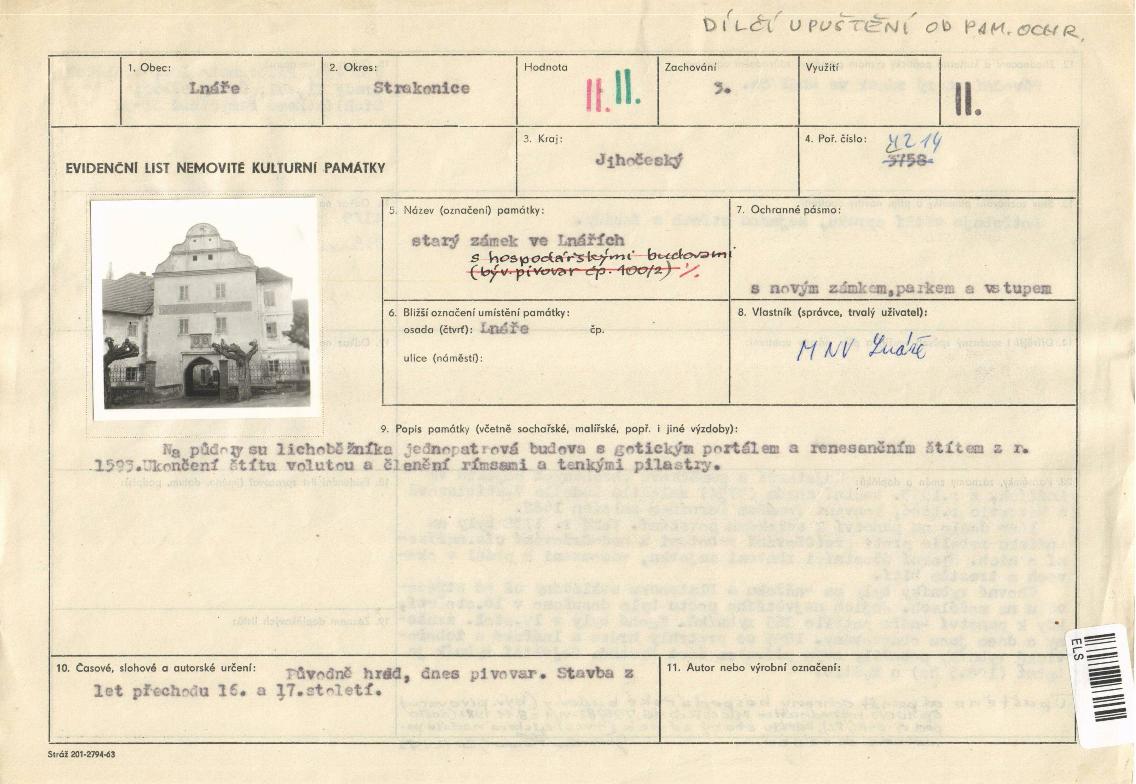 DÍLČÍ UPUŠTĚNÍ OD PAM. OCHR.
1. Obec:
Lnáře
2. Okres:
Strakonice
Hodnota
II. II.
Zachování
3.
Využití
II.
EVIDENČNÍ LIST NEMOVITÉ KULTURNÍ PAMÁTKY
3. Kraj:
Jihočeský
4. Poř. číslo:
4214
3758
5. Název (označení) památky:
starý zámek ve Lnářích
s hospodářskými budovami
(býv. pivovar čp. 100/2) ·/.
7. Ochranné pásmo:
s novým zámkem,parkem a vstupem
6. Bližší označení umístění památky:
osada (čtvrť): Lnáře čp.
ulice (náměstí):
8. Vlastník (správce, trvalý uživatel):
MNV Lnáře
9. Popis památky (včetně sochařské, malířské, popř. i jiné výzdoby):
Na půdorysu lichoběžníka jednopatrová budova s gotickým portálem a renesančním štítem z r.
1593.Ukončení štítu volutou a členění římsami a tenkými pilastry.
10. Časové, slohové a autorské určení:
Původně hrad, dnes pivovar. Stavba z
let přechodu 16. a 17.století.
11. Autor nebo výrobní označení:
ELS
Stráž 201-2794-63